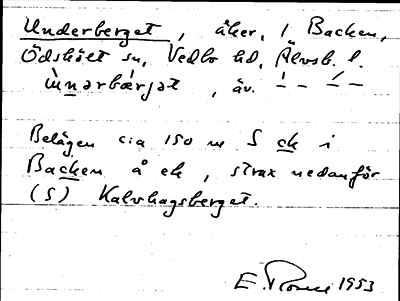 Underberget, åker, / Backen,
Ödskölt sn, Vedbo hd, Älvsb. l.
ùnərbǽrjət, äv. ´– – `– –
Belägen c:a 150 m S ck i
Backen å ek, strax nedanför
(S) Kalvhagsberget.
E. 1953